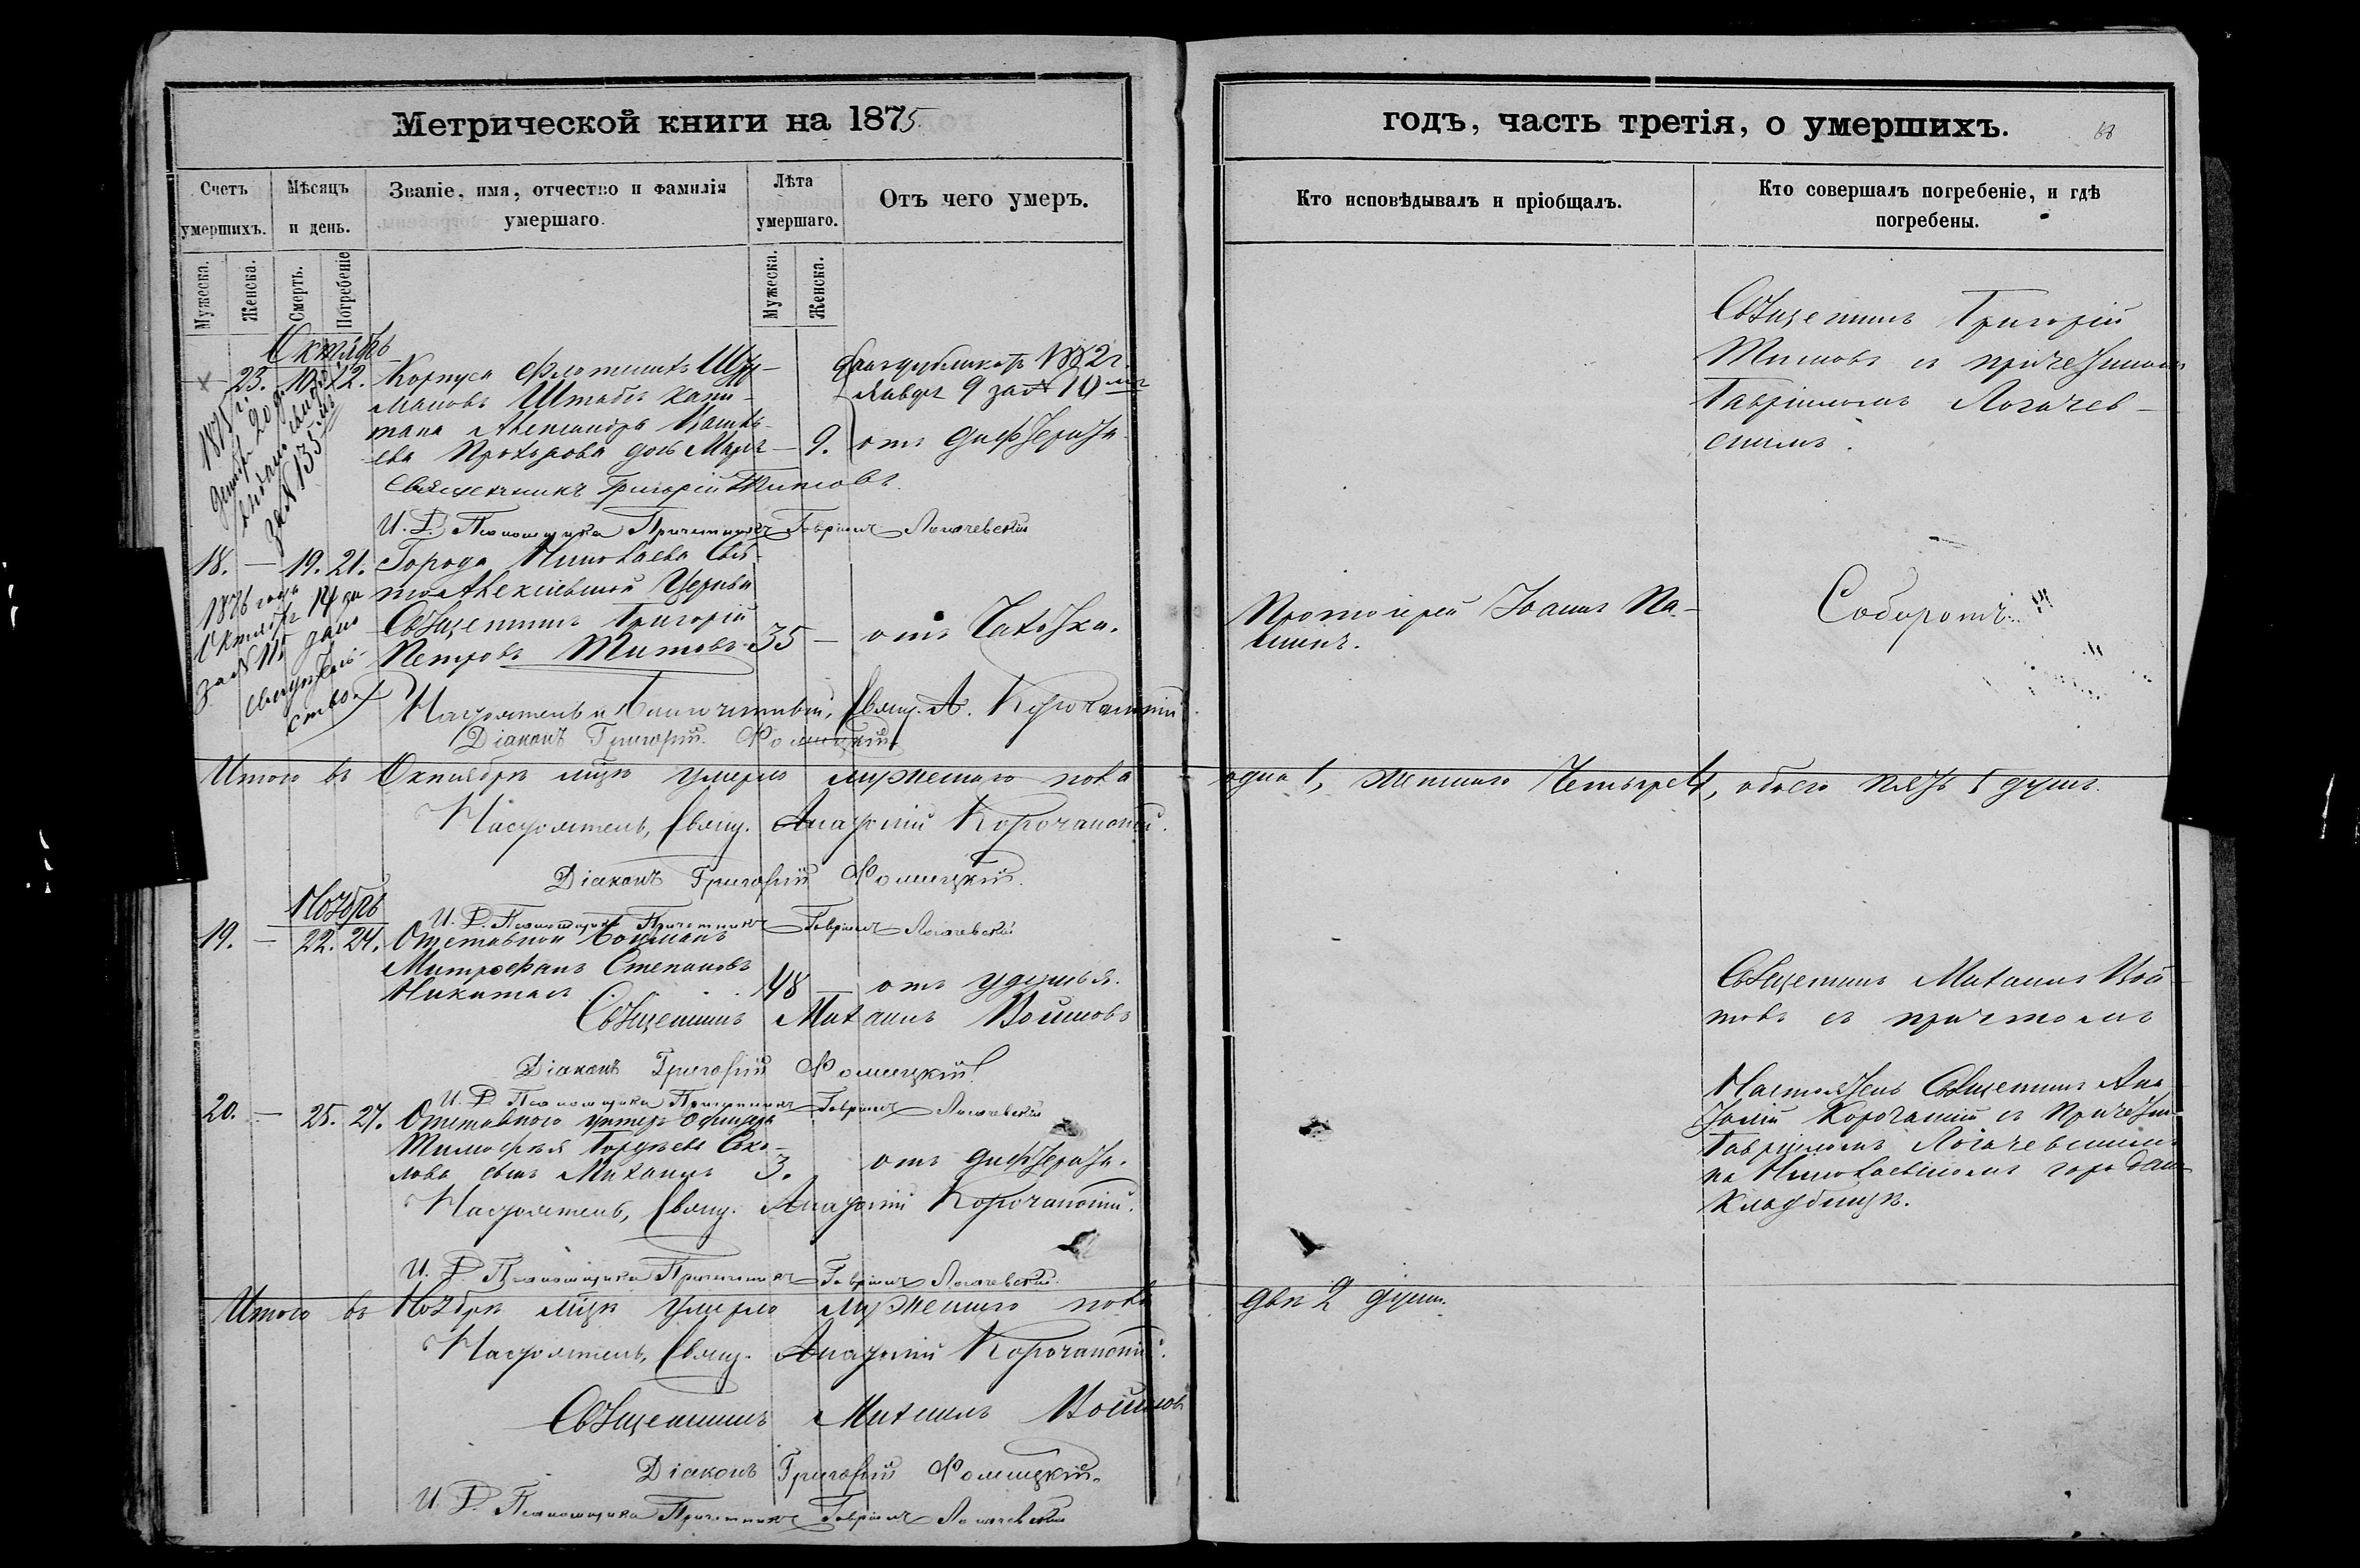 Метрической книги на 1875.
годъ, часть третія, о умершихъ.
68
Счетъ умершихъ.
Мѣсяцъ и день.
Званіе, имя, отчество и фамилія умершаго.
Лѣта умершаго.
Отъ чего умеръ.
Кто исповѣдывалъ и пріобщалъ.
Кто совершалъ погребеніе, и гдѣ погребены.
Мужеска.
Женска.
Смерть.
Погребеніе
Мужеска.
Женска.
Октябрь
— 23. 10. 12. Корпуса флотскихъ Штур-
мановъ Штабсъ капи-
тана Александра
Прохорова дочь — 9. отъ дифтерита
1882 г.
9 за № 10
1875 г.
за № 135
Священникъ Григорій Титовъ.
И. Д. Псаломщика Причетникъ Гавріилъ Логачевскій
Священникъ Григорій
Титовъ съ причетникомъ
Гавріиломъ Логачев-
скимъ.
18. — 19. 21. Города Николаева Свя-
то Алексіевской Церкви
Священникъ Григорій
Петровъ Титовъ. 35 — отъ Чахотки.
1876 года
Октября 14 за
№ 115 дано
свидѣтель-
ство
Протоіерей Іоаннъ
Соборомъ
Настоятель и Благочинный, Свящ. А. Корочанскій
Діаконъ Григорій Фомицкій
Итого въ Октябрѣ мцѣ умерло мужескаго пола
одна 1, женскаго Четыре 4, обоего полъ 5 душъ.
Настоятель, Свящ. Анатолій Корочанскій.
Діаконъ Григорій Фомицкій.
Ноябрь
И. Д. Псаломщика Причетникъ Гавріилъ Логачевскій
19. — 22. 24. Отставной Боцманъ
Митрофанъ Степановъ
48 — отъ удушья.
Священникъ Михаилъ Войтовъ
Священникъ Михаилъ Вой-
товъ съ причтомъ
Діаконъ Григорій Фомицкій
И. Д. Псаломщика Причетникъ Гавріилъ Логачевскій
20. — 25. 27. Отставного унтеръ офицера
Тимофѣя Гордѣева Соко-
лова сынъ Михаилъ 3. отъ дифтерита.
Настоятель Священникъ Ана-
толій Корочанскій съ Причетн.
Гавріиломъ Логачевскимъ
на Николаевскомъ городск.
Кладбищѣ.
Настоятель, Свящ. Анатолій Корочанскій.
И. Д. Псаломщика Причетникъ Гавріилъ Логачевскій
Итого въ Ноябрѣ мцѣ умерло мужескаго пола
двѣ 2 души.
Настоятель, Свящ. Анатолій Корочанскій.
Священникъ Михаилъ Войтовъ
Діаконъ Григорій Фомицкій.
И. Д. Псаломщика Причетникъ Гавріилъ Логачевскій